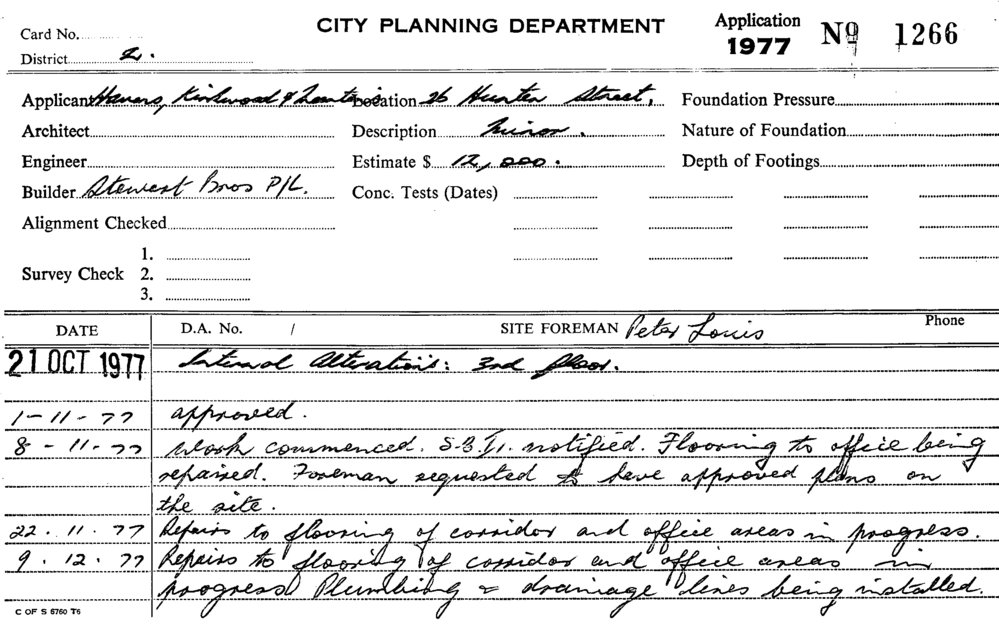 CITY PLANNING DEPARTMENT
Application
1977 Nº 1266
Card No.
District 2.
Applicant Havers, Kirkwood & Location 26 Hunter Street, Foundation Pressure
Architect Description Minor. Nature of Foundation
Engineer Estimate $ 12,000. Depth of Footings
Builder Stewart Bros P/L. Conc. Tests (Dates)
Alignment Checked
Survey Check 1.
2.
3.
DATE D.A. No. / SITE FOREMAN Peter Louis Phone
21 OCT 1977 Internal Alterations: 3rd floor.
1-11-77 approved.
8-11-77 Work commenced. S.B.I. notified. Flooring to office being
repaired. Foreman requested to have approved plans on
the site.
22.11.77 Repairs to flooring of corridor and office areas in progress.
9.12.77 Repairs to flooring of corridor and office areas in
progress Plumbing & drainage lines being installed.
C OF S 6760 T6